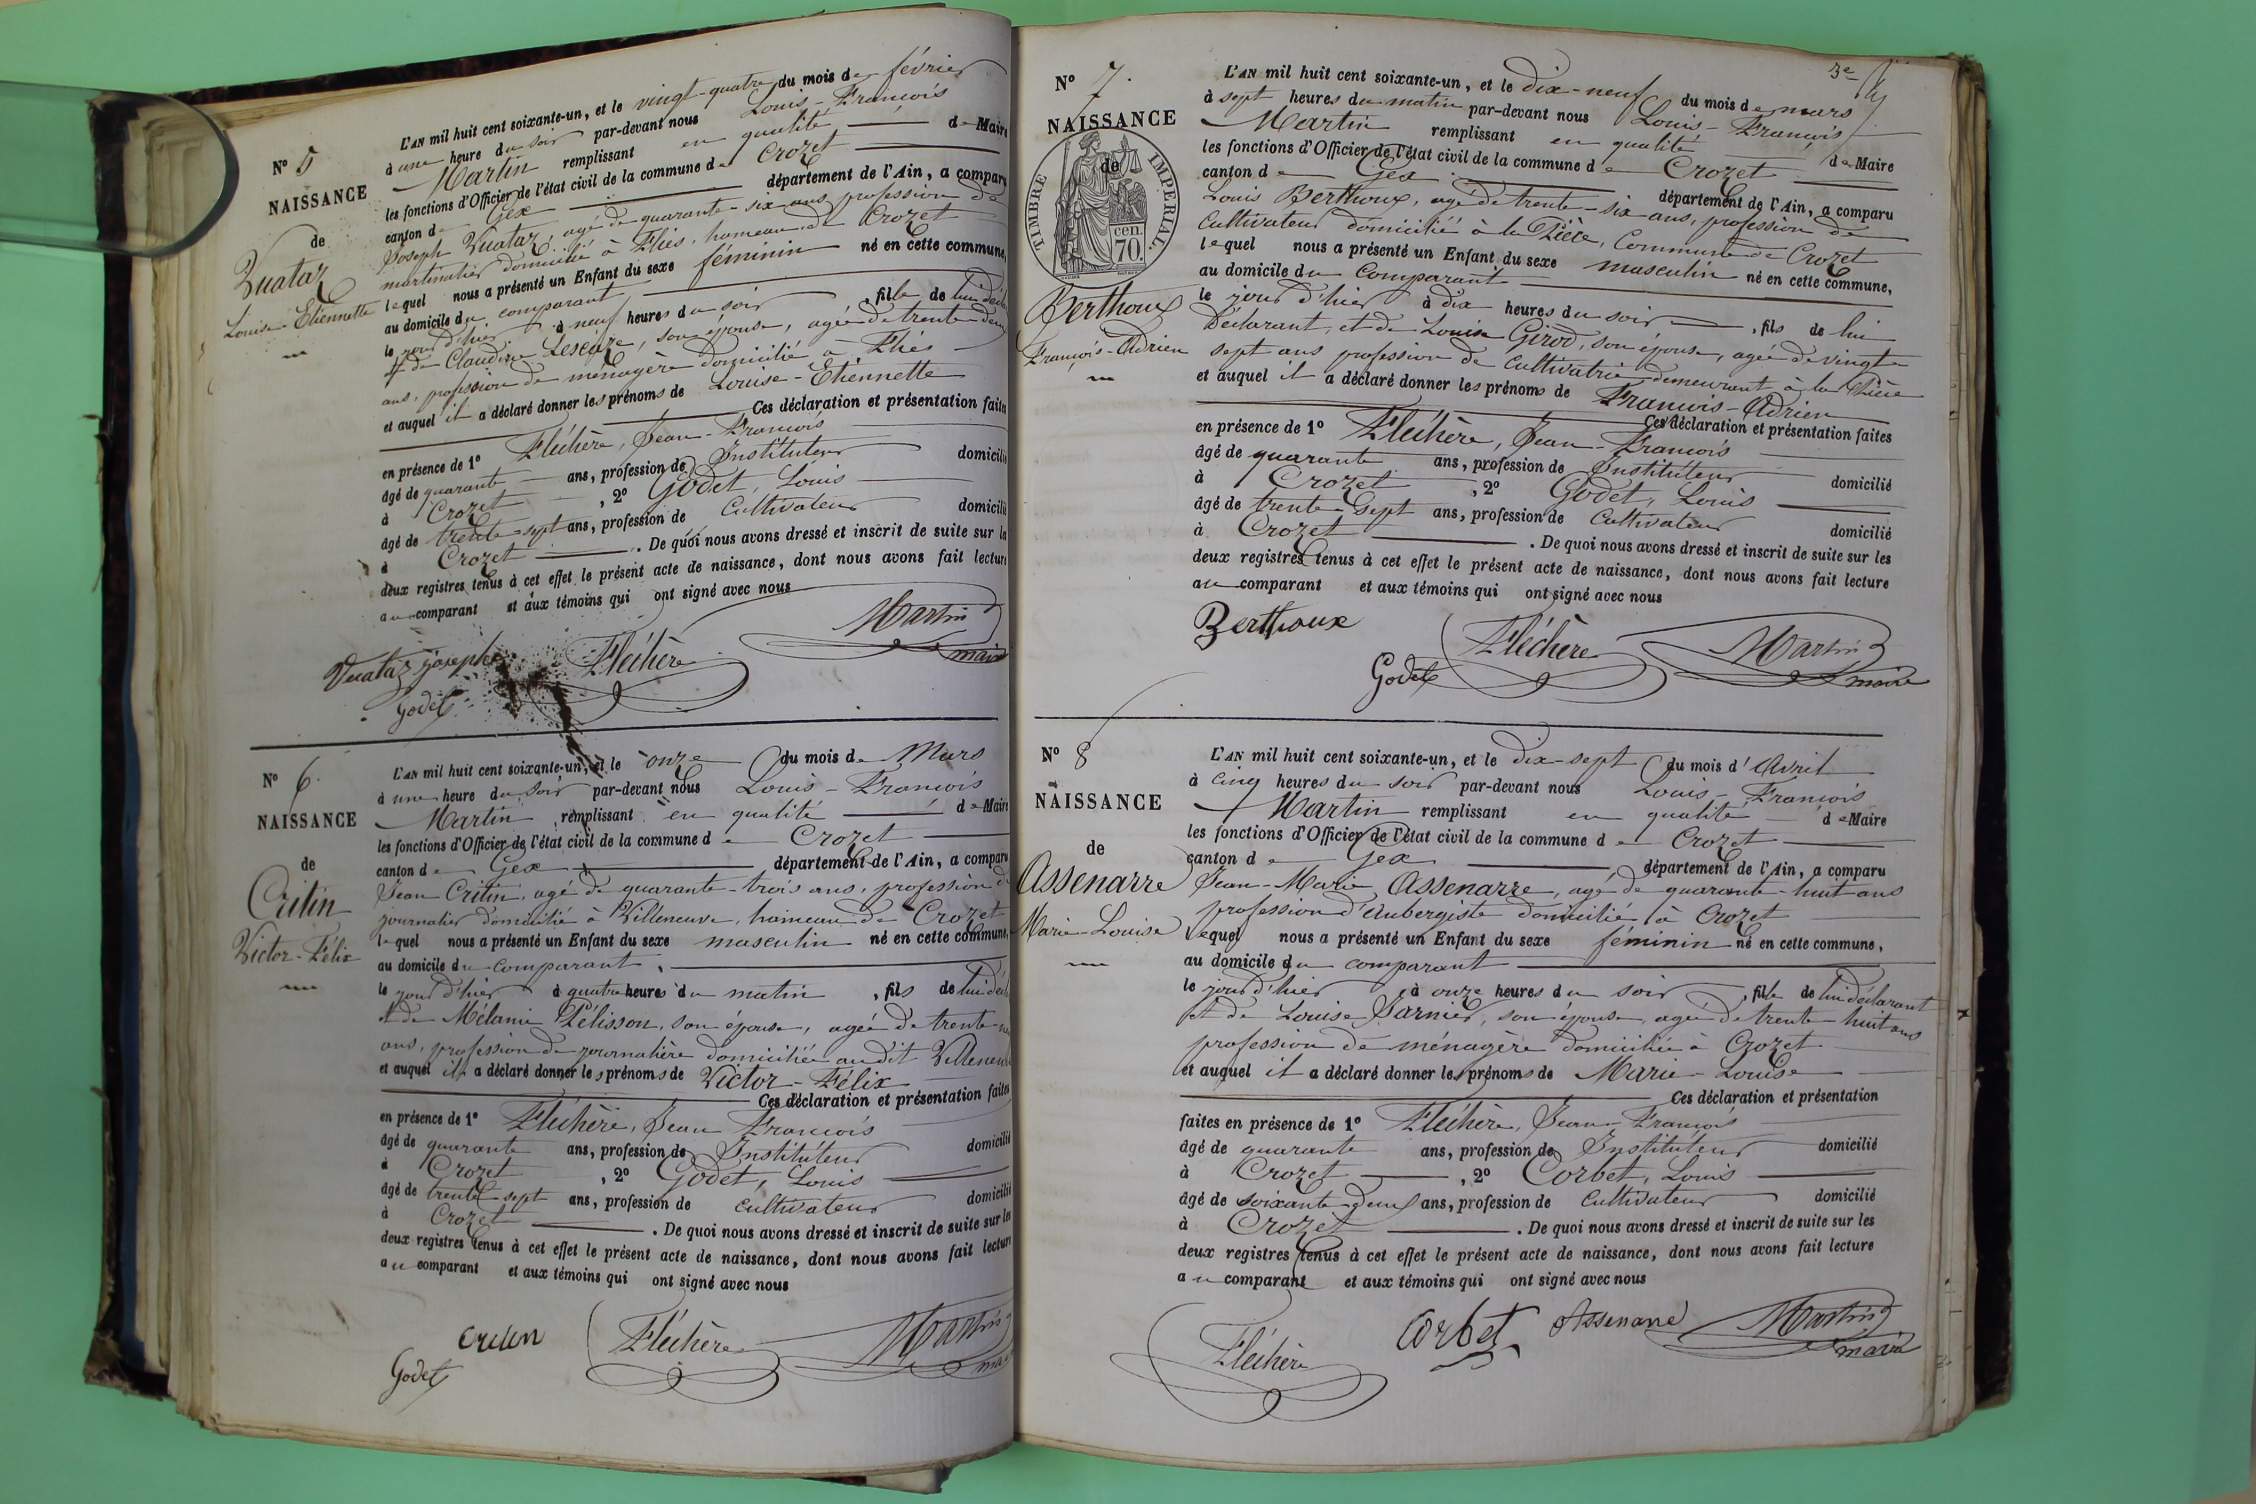 N° 5
NAISSANCE
de
Vuataz
Louise-Etiennette
L'AN mil huit cent soixante-un, et le vingt-quatre du mois de février
à une heure du soir par-devant nous Louis-François
Martin remplissant en qualité de Maire
les fonctions d'Officier de l'état civil de la commune de Crozet
canton de Gex département de l'Ain, a comparu
Joseph Vuataz, agé de quarante-six ans, profession de
domicilié à Flies, hameau de Crozet
lequel nous a présenté un Enfant du sexe féminin né en cette commune,
au domicile du comparant,
le jour d'hier à neuf heures du soir, fille de lui
et de Claudine, son épouse, agée de trente-deux
ans, profession de ménagère domicilié à Flies
et auquel il a déclaré donner les prénoms de Louise-Etiennette
Ces déclaration et présentation faites
en présence de 1° Fléchère, Jean-François
âgé de quarante ans, profession de Instituteur domicilié
à Crozet, 2° Godet, Louis
âgé de trente-sept ans, profession de Cultivateur domicilié
à Crozet. De quoi nous avons dressé et inscrit de suite sur les
deux registres tenus à cet effet le présent acte de naissance, dont nous avons fait lecture
au comparant et aux témoins qui ont signé avec nous
Martin
maire
Vuataz joseph Fléchère
Godet
N° 6.
NAISSANCE
de
Critin
Victor-Félix
L'AN mil huit cent soixante-un, et le onze du mois de Mars
à une heure du soir par-devant nous Louis-François
Martin remplissant en qualité de Maire
les fonctions d'Officier de l'état civil de la commune de Crozet
canton de Gex département de l'Ain, a comparu
Jean Critin, agé de quarante-trois ans, profession de
journalier domicilié à Villeneuve, hameau de Crozet
lequel nous a présenté un Enfant du sexe masculin né en cette commune,
au domicile du comparant,
le jour d'hier à quatre heures du matin, fils de lui
et de Mélanie Pélisson, son épouse, agée de trente
ans, profession de journalière domiciliée audit Villeneuve
et auquel il a déclaré donner les prénoms de Victor-Félix
Ces déclaration et présentation faites
en présence de 1° Fléchère, Jean François
âgé de quarante ans, profession de Instituteur domicilié
à Crozet, 2° Godet, Louis
âgé de trente sept ans, profession de cultivateur domicilié
à Crozet. De quoi nous avons dressé et inscrit de suite sur les
deux registres tenus à cet effet le présent acte de naissance, dont nous avons fait lecture
au comparant et aux témoins qui ont signé avec nous
Critin Fléchère Martin
Godet
3e
N° 7.
NAISSANCE
de
TIMBRE IMPERIAL.
70.
cen.
Berthoux
François-Adrien
L'AN mil huit cent soixante-un, et le dix-neuf du mois de mars
à sept heures du matin par-devant nous Louis-François
Martin remplissant en qualité de Maire
les fonctions d'Officier de l'état civil de la commune de Crozet
canton de Gex département de l'Ain, a comparu
Louis Berthoux, agé de trente-six ans, profession de
Cultivateur domicilié à la Pièce, Commune de Crozet
lequel nous a présenté un Enfant du sexe masculin né en cette commune,
au domicile du Comparant
le jour d'hier à dix heures du soir, fils de lui
Déclarant, et de Louise Girod, son épouse, agée de vingt
sept ans profession de Cultivatrice demeurant à la Pièce
et auquel il a déclaré donner les prénoms de François-Adrien
Ces déclaration et présentation faites
en présence de 1° Fléchère, Jean-François
âgé de quarante ans, profession de Instituteur domicilié
à Crozet, 2° Godet, Louis
âgé de trente sept ans, profession de Cultivateur domicilié
à Crozet. De quoi nous avons dressé et inscrit de suite sur les
deux registres tenus à cet effet le présent acte de naissance, dont nous avons fait lecture
au comparant et aux témoins qui ont signé avec nous
Berthoux Fléchère Martin
Godet maire
N° 8
NAISSANCE
de
Assenarre
Marie-Louise
L'AN mil huit cent soixante-un, et le dix-sept du mois d'Avril
à cinq heures du soir par-devant nous Louis-François
Martin remplissant en qualité de Maire
les fonctions d'Officier de l'état civil de la commune de Crozet
canton de Gex département de l'Ain, a comparu
Jean-Marie Assenarre, agé de quarante-huit ans
profession d'Aubergiste domicilié à Crozet
Lequel nous a présenté un Enfant du sexe féminin né en cette commune,
au domicile du comparant
le jour d'hier à onze heures du soir, fille de lui déclarant
et de Louise Jarnier, son épouse, agée de trente-huit ans
profession de ménagère domiciliée à Crozet
et auquel il a déclaré donner les prénoms de Marie-Louise
Ces déclaration et présentation
faites en présence de 1° Fléchère, Jean-François
âgé de quarante ans, profession de Instituteur domicilié
à Crozet, 2° Corbet, Louis
âgé de soixante deux ans, profession de Cultivateur domicilié
à Crozet. De quoi nous avons dressé et inscrit de suite sur les
deux registres tenus à cet effet le présent acte de naissance, dont nous avons fait lecture
au comparant et aux témoins qui ont signé avec nous
Fléchère Corbet Assenarre Martin
maire